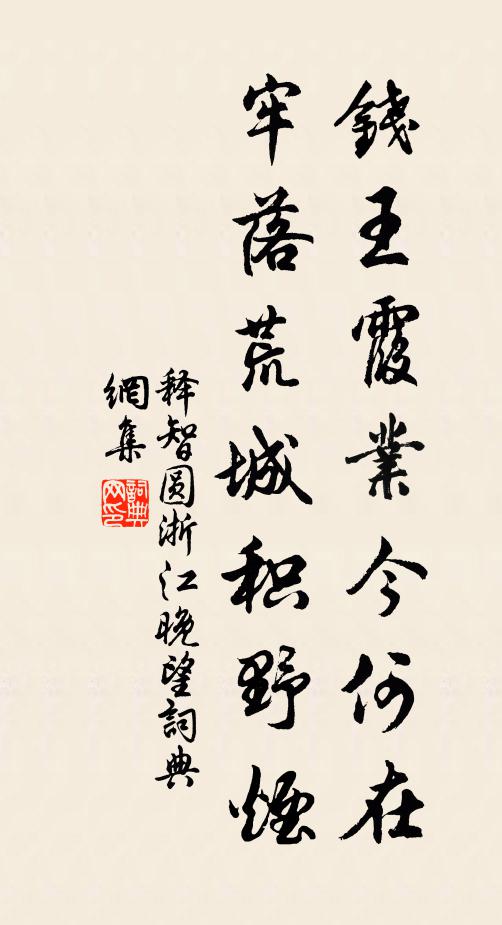 錢王霞業今何在
牢落荒城积野煙
释智圆浙江晚望詞典
網集
詞典
网